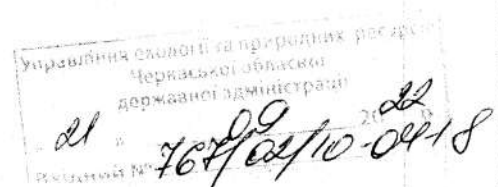 Управління екології та природних ресурсів
Черкаської обласної
державної адміністрації
21 " 09 2022 р
Вхідний № 767/02/10-04-18